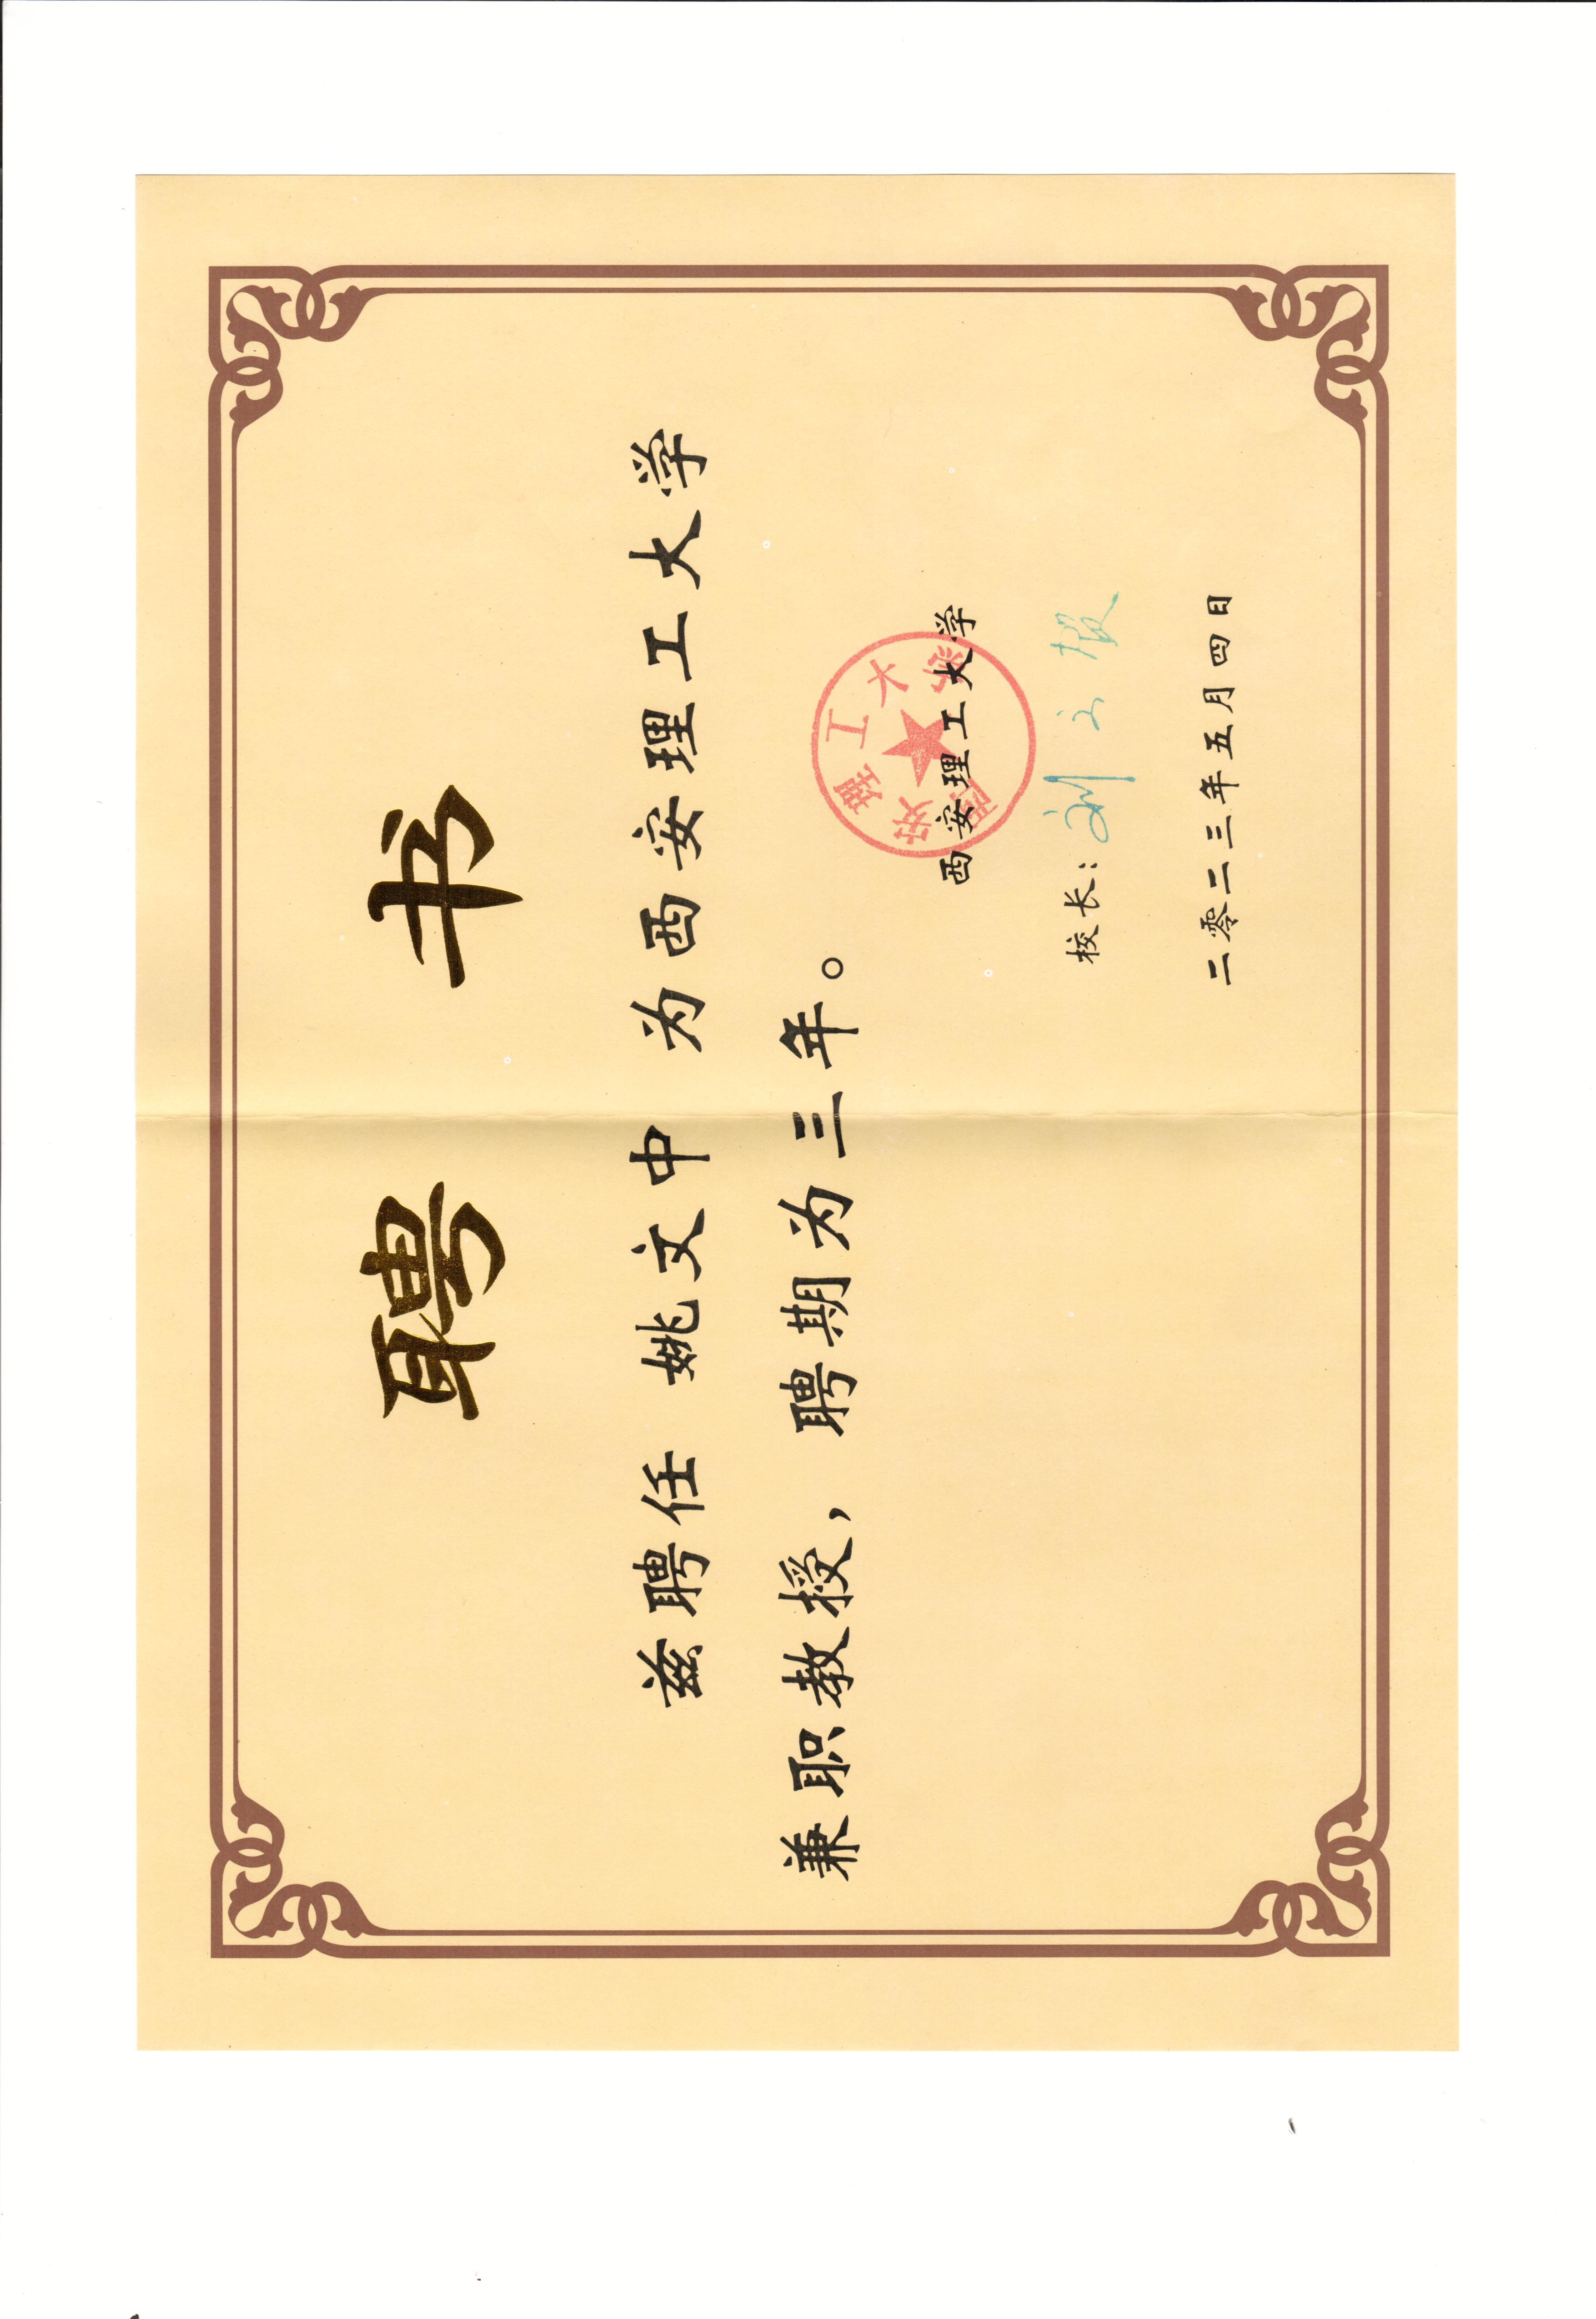 聘 书
兹聘任 姚文中 为西安理工大学
兼职教授，聘期为三年。
西安理工大学
西安理工大学
校长：
二零二三年五月四日